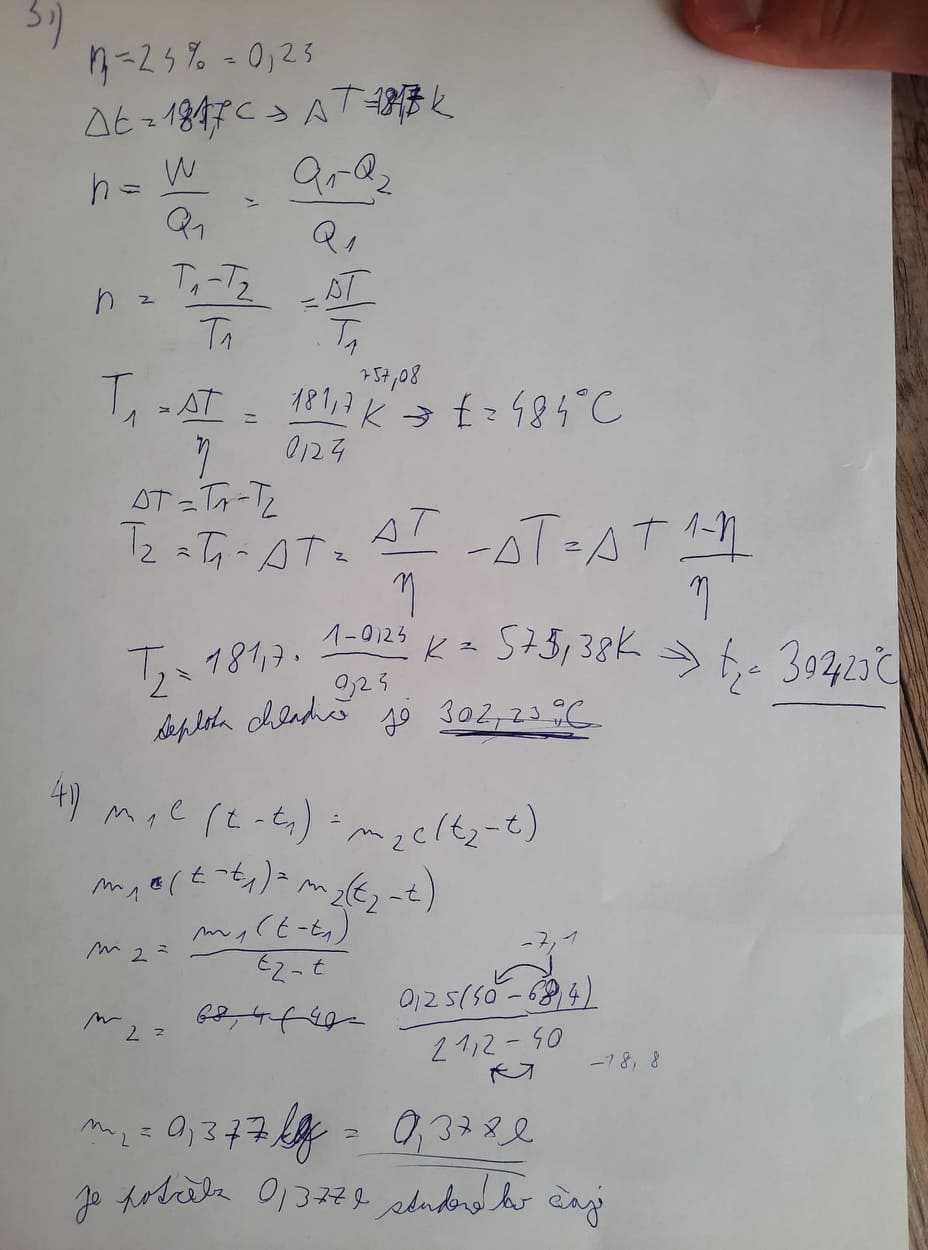 3.)
η = 24% = 0,24
Δt = 181,7°C ⇒ ΔT = 181,7 K
η = W/Q₁ = (Q₁-Q₂)/Q₁
η = (T₁-T₂)/T₁ = ΔT/T₁
T₁ = ΔT/η = 181,7/0,24 K 757,08 ⇒ t = 484°C
ΔT = T₁-T₂
T₂ = T₁ - ΔT = ΔT/η - ΔT = ΔT (1-η)/η
T₂ = 181,7 · (1-0,24)/0,24 K = 575,38K ⇒ t₂ = 302,23°C
teplota chladiče je 302,23°C
4.)
m₁c (t-t₁) = m₂c(t₂-t)
m₁(t-t₁) = m₂(t₂-t)
m₂ = m₁(t-t₁)/(t₂-t)
-7,1
m₂ = 68,4 (40 0,25(40-68,4)/(21,2-40)
-18,8
m₂ = 0,377 kg = 0,378l
je potřeba 0,377l studeného čaje